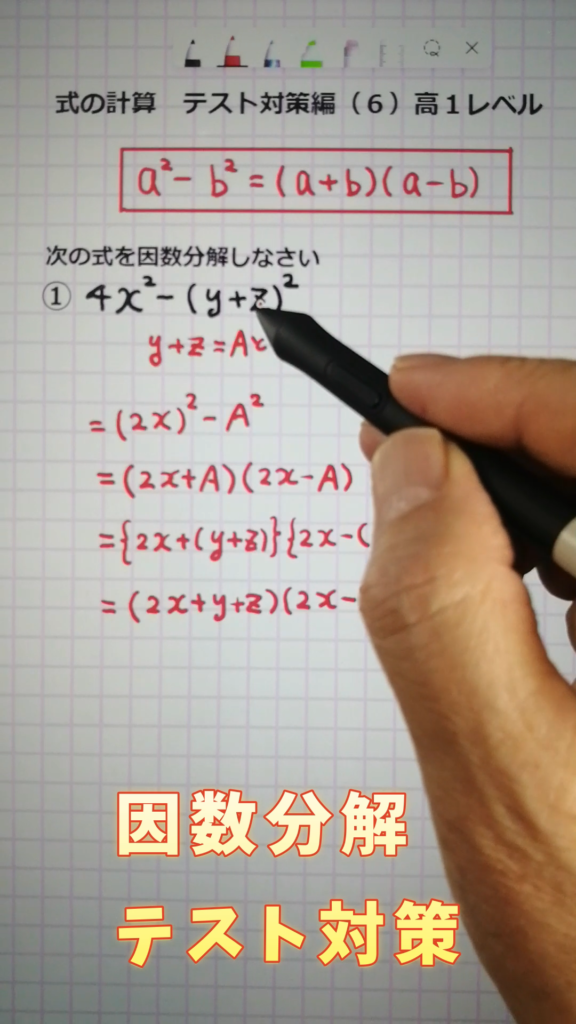 式の計算 テスト対策編（６）高１レベル
a² - b² = (a+b)(a-b)
次の式を因数分解しなさい
① 4x² - (y+z)²
y+z = A
= (2x)² - A²
= (2x+A)(2x-A)
= {2x+(y+z)}{2x-(
= (2x+y+z)(2x-
因数分解
テスト対策